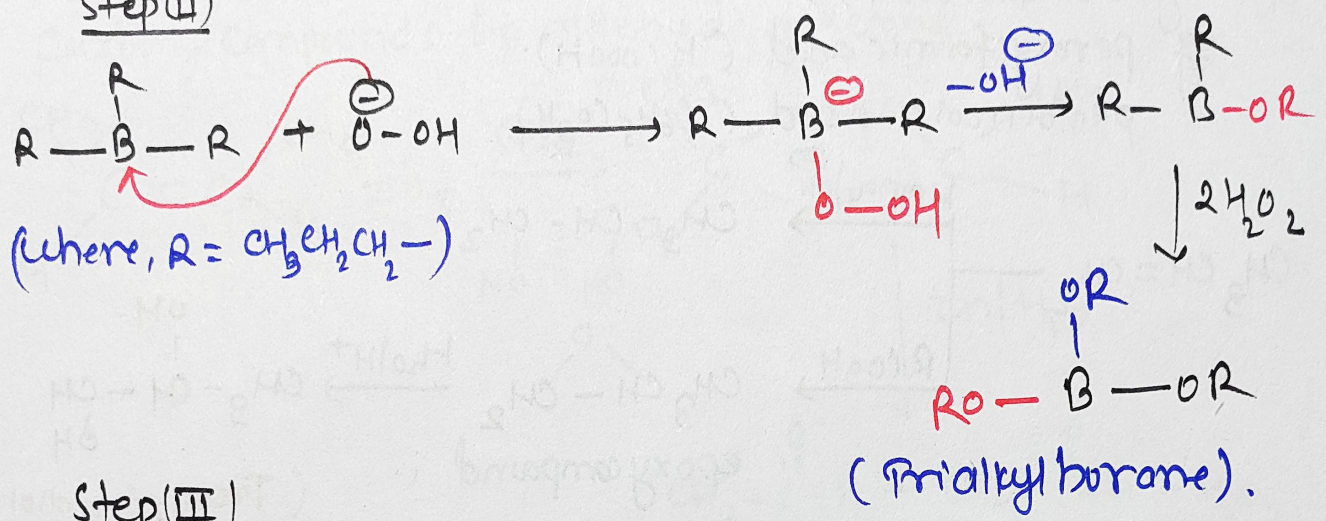 Step(II)
R
R—B—R + O⊖-OH ⟶ R—B⊖—R -OH⊖ ⟶ R—B-OR
R
R
O-OH
(where, R= CH₃CH₂CH₂-)
2H₂O₂
OR
RO—B—OR
(Trialkylborane).
Step(III)